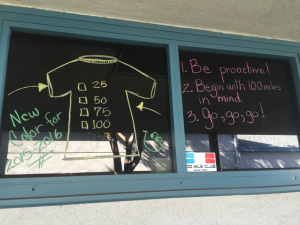 New
Color For
2015-2016
25
50
75
100
1. Be proactive!
2. Begin with 100 miles
in mind
3. go, go, go!
MILE CLUB